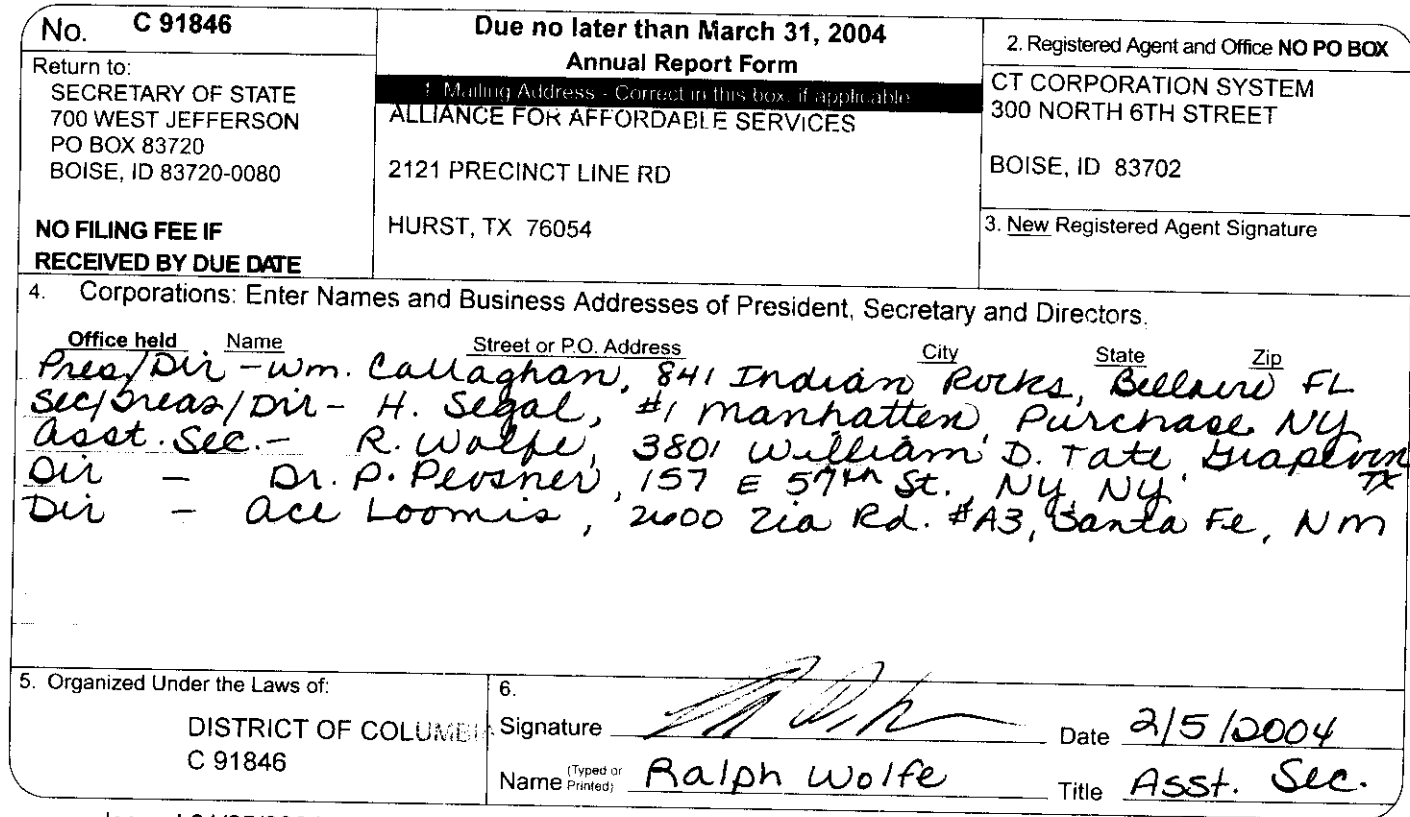 No. C 91846
Return to:
SECRETARY OF STATE
700 WEST JEFFERSON
PO BOX 83720
BOISE, ID 83720-0080
NO FILING FEE IF
RECEIVED BY DUE DATE
Due no later than March 31, 2004
Annual Report Form
1. Mailing Address - Correct in this box, if applicable
ALLIANCE FOR AFFORDABLE SERVICES
2121 PRECINCT LINE RD
HURST, TX 76054
2. Registered Agent and Office NO PO BOX
CT CORPORATION SYSTEM
300 NORTH 6TH STREET
BOISE, ID 83702
3. New Registered Agent Signature
4. Corporations: Enter Names and Business Addresses of President, Secretary and Directors.
Office held Name Street or P.O. Address City State Zip
Pres/Dir - Wm. Callaghan, 841 Indian Rocks, Bellaire FL
Sec/Treas/Dir - H. Segal, #1 Manhatten, Purchase NY
Asst. Sec. - R. Wolfe, 3801 William D. Tate, Grapevin TX
Dir - Dr. P. Pevsner, 157 E 57th St., NY, NY
Dir - Ace Loomis, 2600 Zia Rd. #A3, Santa Fe, NM
5. Organized Under the Laws of:
DISTRICT OF COLUMBIA
C 91846
6.
Signature Date 2/5/2004
Name (Typed or Printed) Ralph Wolfe Title Asst. Sec.